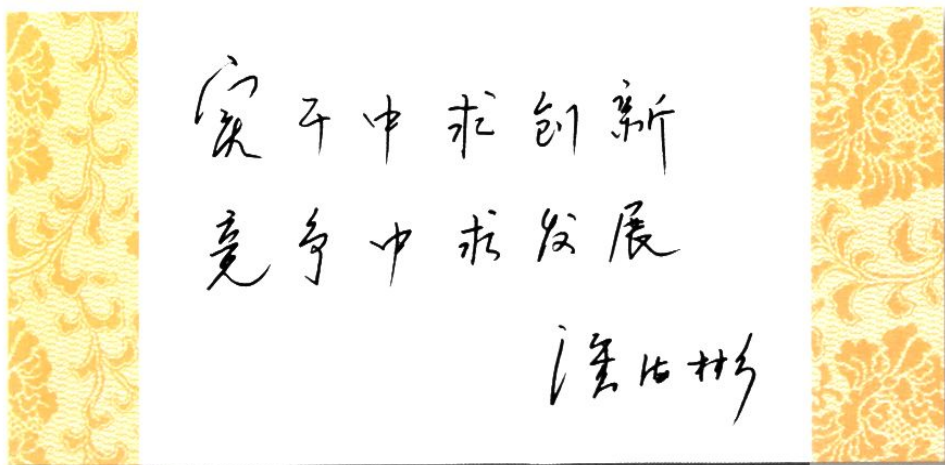 实干中求创新
竞争中求发展